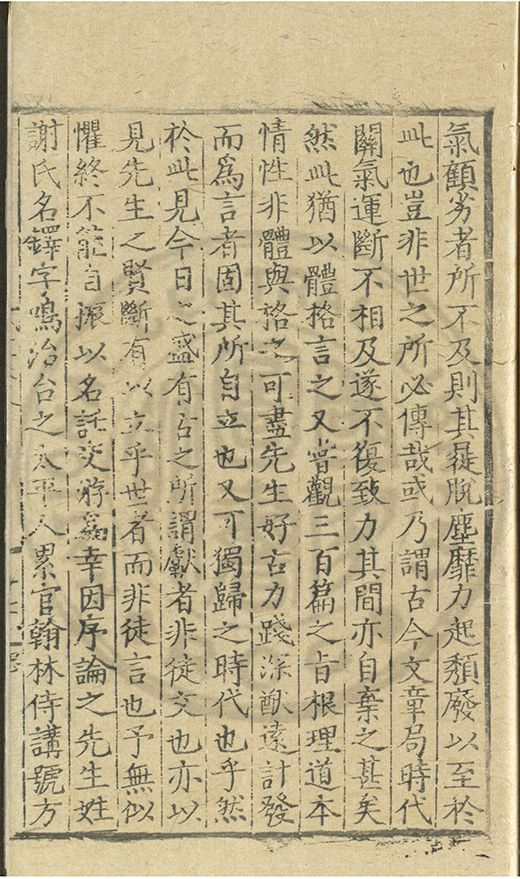 氣顧劣者所不及則其蹝脫塵靡力起頹廢以至於
此也豈非世之所必傳哉或乃謂古今文章局時代
關氣運斷不相及遂不復致力其間亦自棄之甚矣
然此猶以體格言之又嘗觀三百篇之旨根理道本
情性非體與格之可盡先生好古力踐深猷遠計發
而爲言者固其所自立也又可獨歸之時代也乎然
於此見今日之盛有古之所謂獻者非徒文也亦以
見先生之賢斷有以立乎世者而非徒言也予無似
懼終不能自振以名託交游爲幸因序論之先生姓
謝氏名鐸字鳴治台之太平人累官翰林侍講號方